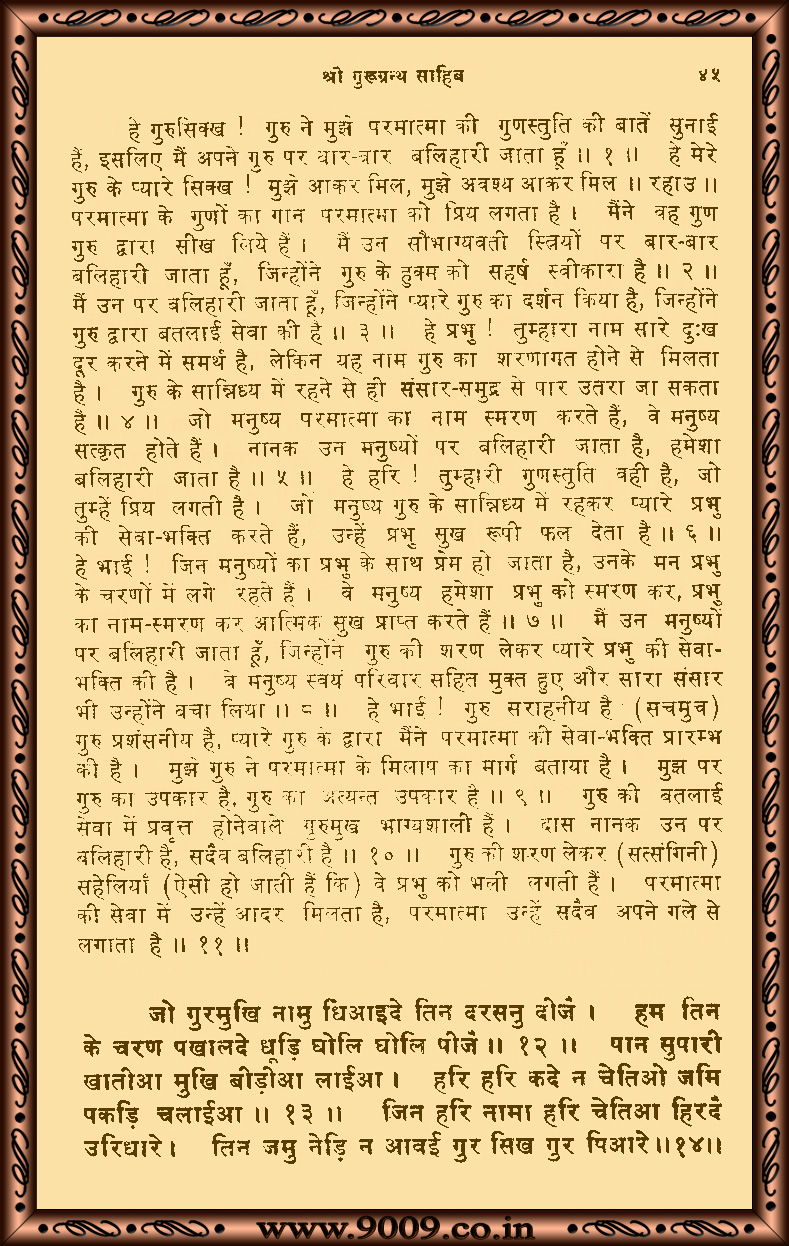 श्री गुरूग्रन्थ साहिब ४५
हे गुरुसिक्ख ! गुरु ने मुझे परमात्मा की गुणस्तुति की बातें सुनाई
हैं, इसलिए मैं अपने गुरु पर बार-बार बलिहारी जाता हूँ ॥ १ ॥ हे मेरे
गुरु के प्यारे सिक्ख ! मुझे आकर मिल, मुझे अवश्य आकर मिल ॥ रहाउ ॥
परमात्मा के गुणों का गान परमात्मा को प्रिय लगता है । मैंने वह गुण
गुरु द्वारा सीख लिये हैं । मैं उन सौभाग्यवती स्त्रियों पर बार-बार
बलिहारी जाता हूँ, जिन्होंने गुरु के हुक्म को सहर्ष स्वीकारा है ॥ २ ॥
मैं उन पर बलिहारी जाता हूँ, जिन्होंने प्यारे गुरु का दर्शन किया है, जिन्होंने
गुरु द्वारा बतलाई सेवा की है ॥ ३ ॥ हे प्रभु ! तुम्हारा नाम सारे दुःख
दूर करने में समर्थ है, लेकिन यह नाम गुरु का शरणागत होने से मिलता
है । गुरु के सान्निध्य में रहने से ही संसार-समुद्र से पार उतरा जा सकता
है ॥ ४ ॥ जो मनुष्य परमात्मा का नाम स्मरण करते हैं, वे मनुष्य
सत्कृत होते हैं । नानक उन मनुष्यों पर बलिहारी जाता है, हमेशा
बलिहारी जाता है ॥ ५ ॥ हे हरि ! तुम्हारी गुणस्तुति वही है, जो
तुम्हें प्रिय लगती है । जो मनुष्य गुरु के सान्निध्य में रहकर प्यारे प्रभु
की सेवा-भक्ति करते हैं, उन्हें प्रभु सुख रूपी फल देता है ॥ ६ ॥
हे भाई ! जिन मनुष्यों का प्रभु के साथ प्रेम हो जाता है, उनके मन प्रभु
के चरणों में लगे रहते हैं । वे मनुष्य हमेशा प्रभु को स्मरण कर, प्रभु
का नाम-स्मरण कर आत्मिक सुख प्राप्त करते हैं ॥ ७ ॥ मैं उन मनुष्यों
पर बलिहारी जाता हूँ, जिन्होंने गुरु की शरण लेकर प्यारे प्रभु की सेवा-
भक्ति की है । वे मनुष्य स्वयं परिवार सहित मुक्त हुए और सारा संसार
भी उन्होंने बचा लिया ॥ ८ ॥ हे भाई ! गुरु सराहनीय है (सचमुच)
गुरु प्रशंसनीय है, प्यारे गुरु के द्वारा मैंने परमात्मा की सेवा-भक्ति प्रारम्भ
की है । मुझे गुरु ने परमात्मा के मिलाप का मार्ग बताया है । मुझ पर
गुरु का उपकार है, गुरु का अत्यन्त उपकार है ॥ ९ ॥ गुरु की बतलाई
सेवा में प्रवृत्त होनेवाले गुरुमुख भाग्यशाली हैं । दास नानक उन पर
बलिहारी है, सदैव बलिहारी है ॥ १० ॥ गुरु की शरण लेकर (सत्संगिनी)
सहेलियाँ (ऐसी हो जाती हैं कि) वे प्रभु को भली लगती हैं । परमात्मा
की सेवा में उन्हें आदर मिलता है, परमात्मा उन्हें सदैव अपने गले से
लगाता है ॥ ११ ॥
जो गुरमुखि नामु धिआइदे तिन दरसनु दीजै । हम तिन
के चरण पखालदे धूड़ि घोलि घोलि पीजै ॥ १२ ॥ पान सुपारी
खातीआ मुखि बीड़ीआ लाईआ । हरि हरि कदे न चेतिओ जमि
पकड़ि चलाईआ ॥ १३ ॥ जिन हरि नामा हरि चेतिआ हिरदै
उरिधारे । तिन जमु नेड़ि न आवई गुर सिख गुर पिआरे ॥१४॥
www.9009.co.in